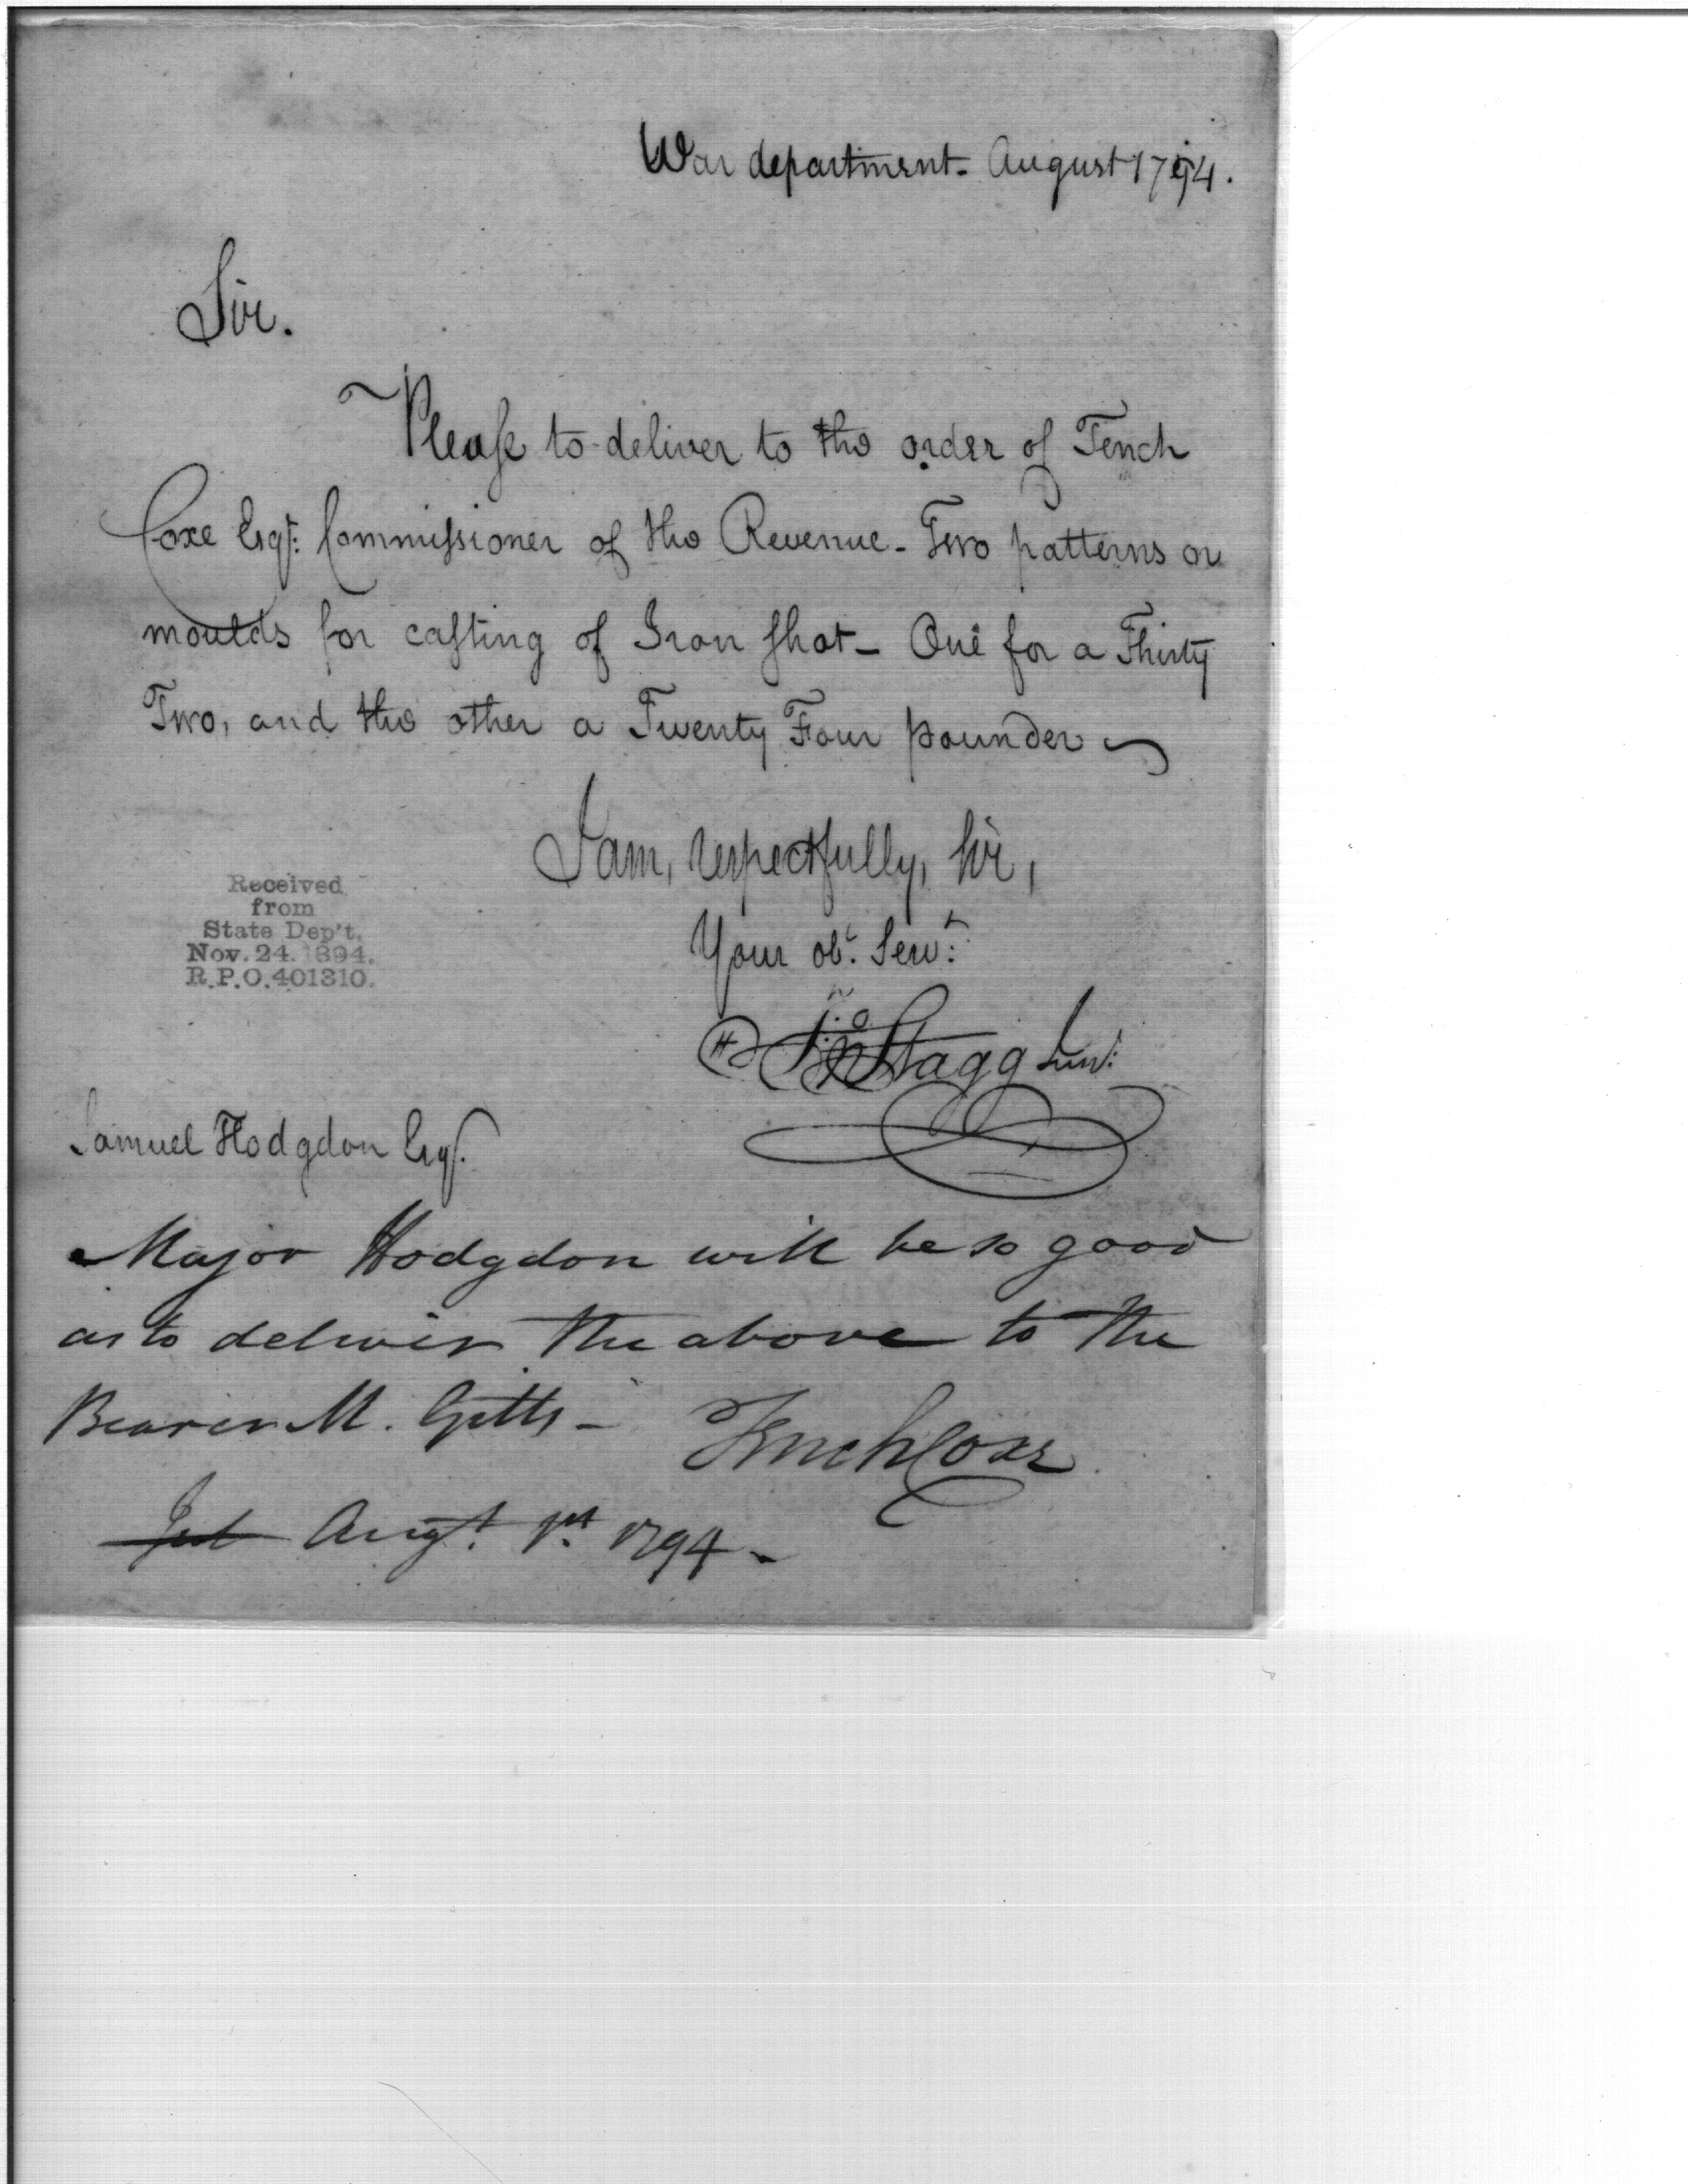 War department - August 1794.
Sir.
Please to deliver to the order of Tench
Coxe Esqr: Commissioner of the Revenue - Two patterns or
moulds for casting of Iron shot - One for a Thirty
Two, and the other a Twenty Four pounder
I am, respectfully, Sir,
Your obt. Servt:
Jno Stagg Junr:
Received
from
State Dep't.
Nov. 24. 1894.
R.P.O. 401310.
Samuel Hodgdon Esqr.
Major Hodgdon will be so good
as to deliver the above to the
Bearer M. Gitts -
Tench Coxe
Augt. 1st. 1794 -